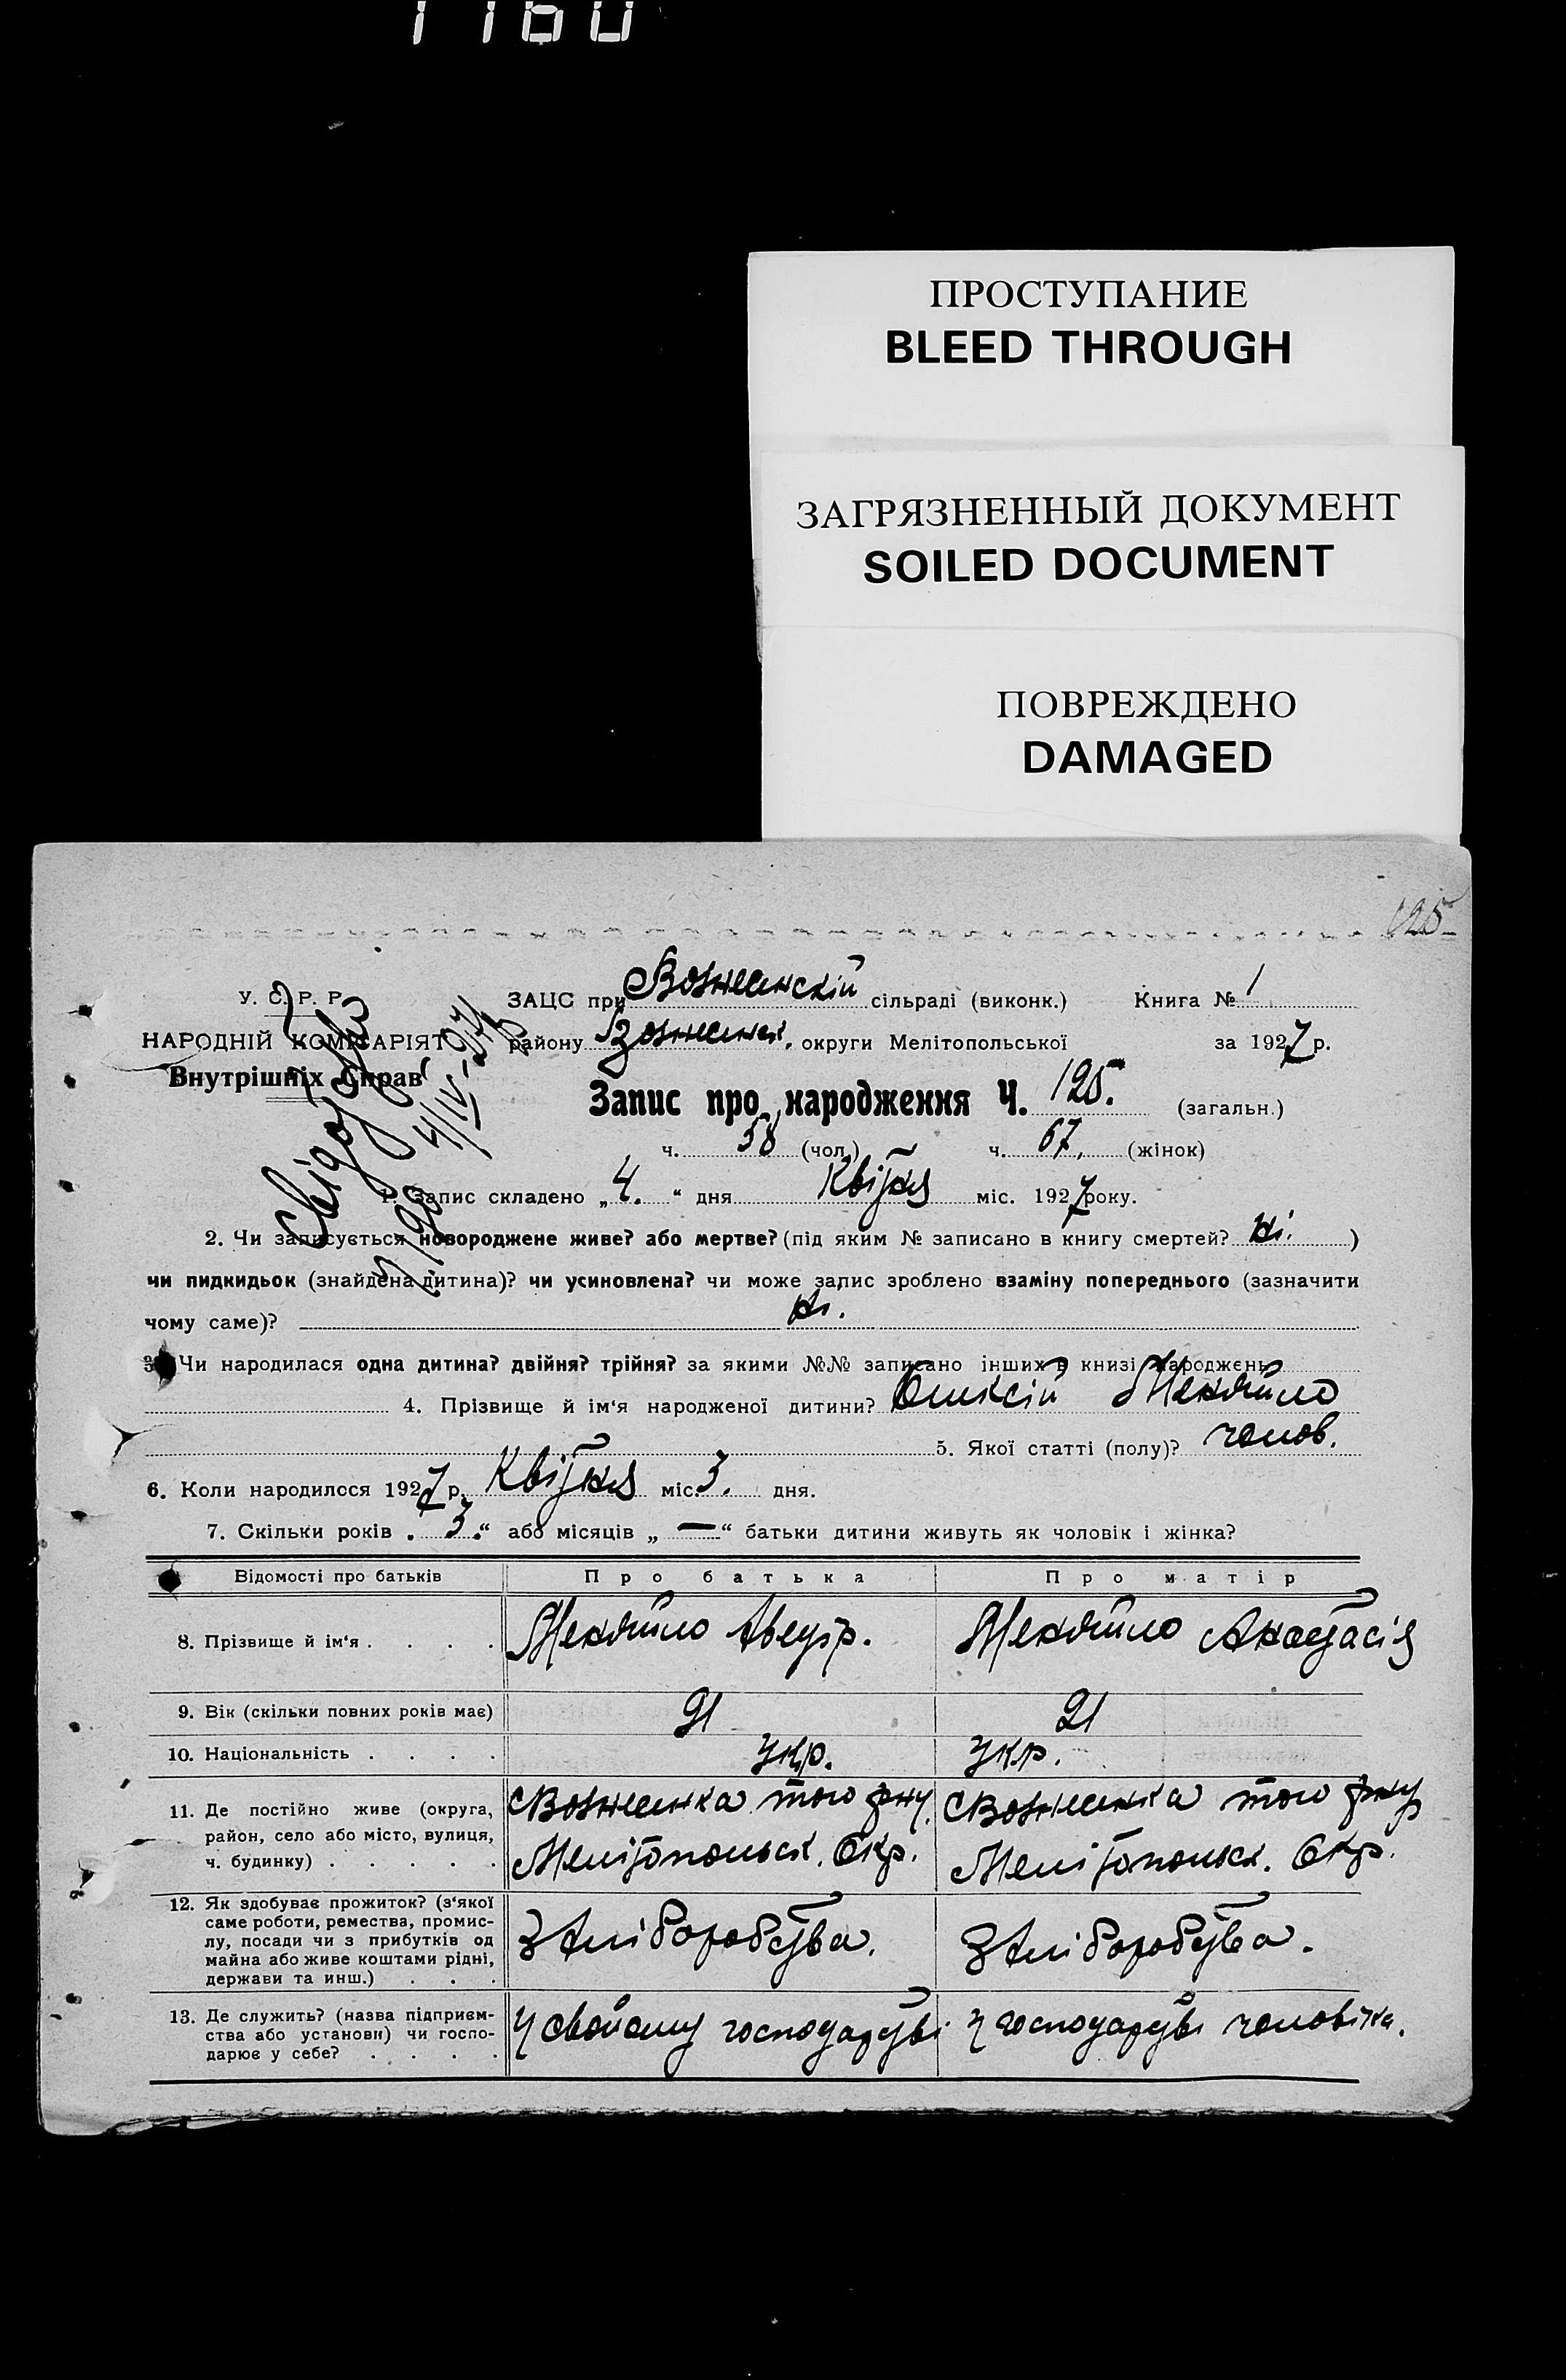 1160
ПРОСТУПАНИЕ
BLEED THROUGH
ЗАГРЯЗНЕННЫЙ ДОКУМЕНТ
SOILED DOCUMENT
ПОВРЕЖДЕНО
DAMAGED
125
У. С. Р. Р.
НАРОДНІЙ КОМІСАРІЯТ
Внутрішніх Справ
ЗАЦС при Вознесенскій сільраді (виконк.) Книга № 1
району Вознесенск. округи Мелітопольської за 1927 р.
Запис про народження Ч. 125. (загальн.)
ч. 58 (чол.) ч. 67. (жінок)
1. Запис складено „4.“ дня Квітня міс. 1927 року.
2. Чи записується новороджене живе? або мертве? (під яким № записано в книгу смертей? Ні. )
чи пидкидьок (знайдена дитина)? чи усиновлена? чи може запис зроблено взаміну попереднього (зазначити
чому саме)? Ні.
3. Чи народилася одна дитина? двійня? трійня? за якими №№ записано інших в книзі народжень
4. Прізвище й ім'я народженої дитини? Олексій
5. Якої статті (полу)? чолов.
6. Коли народилося 1927 р. Квітня міс. 3. дня.
7. Скільки років „3.“ або місяців „—“ батьки дитини живуть як чоловік і жінка?
Відомості про батьків Про батька Про матір
8. Прізвище й ім'я . . . . Анастасія
9. Вік (скільки повних років має) 21 21
10. Національність . . . . Укр. Укр.
11. Де постійно живе (округа, район, село або місто, вулиця, ч. будинку) . . . . .
того р-ну
Мелітопольск. Окр.
того р-ну
Мелітопольск. Окр.
12. Як здобуває прожиток? (з'якої
саме роботи, ремества, промис-
лу, посади чи з прибутків од
майна або живе коштами рідні,
держави та инш.) . . .
З хліборобства.
З хліборобства.
13. Де служить? (назва підприєм-
ства або установи) чи госпо-
дарює у себе? . . . .
У свойому господарстві
У господарстві чоловіка.